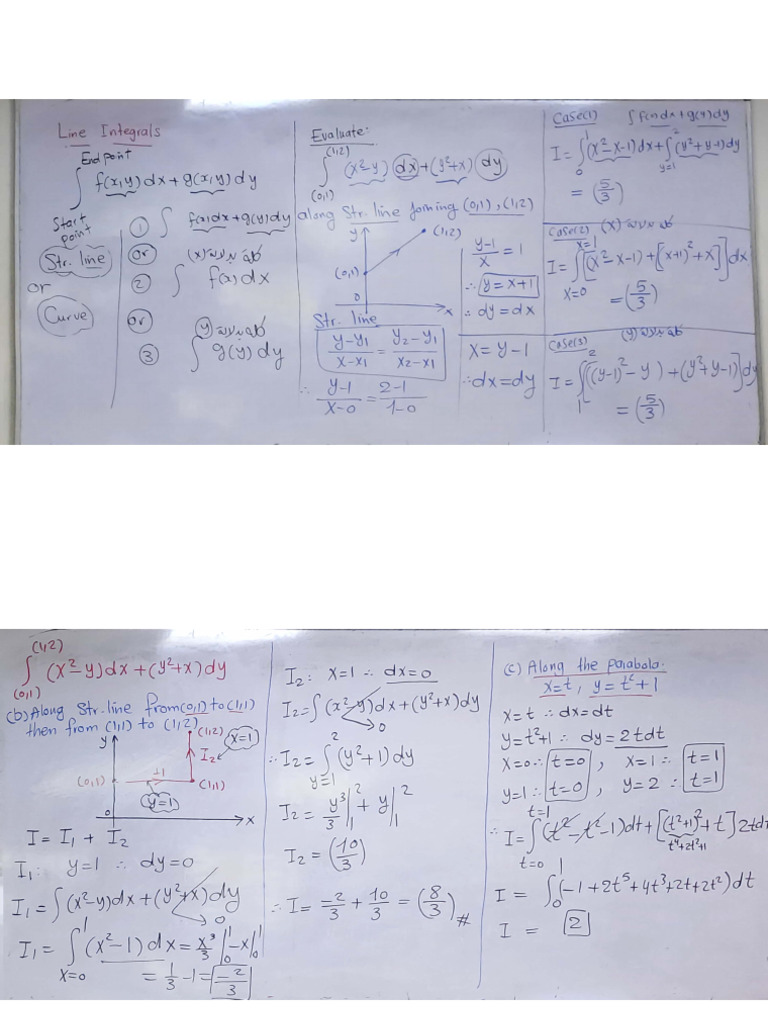 Line Integrals
End point
∫ f(x,y)dx + g(x,y)dy
Start point
Str. line
or
Curve
① ∫ f(x)dx + g(y)dy
or
(x)
② ∫ f(x)dx
or
(y)
③ ∫ g(y)dy
Evaluate:
∫_(0,1)^(1,2) (x²-y)dx+(y²+x)dy
along Str. line joining (0,1), (1,2)
y
(1,2)
(0,1)
0
x
Str. line
(y-y₁)/(x-x₁) = (y₂-y₁)/(x₂-x₁)
∴ (y-1)/(x-0) = (2-1)/(1-0)
(y-1)/x = 1
∴ y = x+1
∴ dy = dx
x = y-1
∴ dx = dy
Case(1) ∫ f(x)dx + g(y)dy
I = ∫_0^1 (x²-x-1)dx + ∫_{y=1}^2 (y²+y-1)dy
= (5/3)
Case(2) (x)
I = ∫_{x=0}^{x=1} [(x²-x-1)+[(x+1)²+x]]dx
= (5/3)
Case(3) (y)
I = ∫_1^2 [((y-1)²-y)+(y²+y-1)]dy
= (5/3)
∫_(0,1)^(1,2) (x²-y)dx+(y²+x)dy
(b) Along Str. line from (0,1) to (1,1)
then from (1,1) to (1,2)
y
(1,2)
x=1
I₂
(0,1)
I1
(1,1)
y=1
0
x
I = I₁ + I₂
I₁: y=1 ∴ dy=0
I₁ = ∫(x²-y)dx+(y²+x)dy
0
I₁ = ∫_{x=0}^1 (x²-1)dx = x³/3|_0^1 - x|_0^1
= 1/3 - 1 = -2/3
I₂: x=1 ∴ dx=0
I₂ = ∫(x²-y)dx+(y²+x)dy
0
∴ I₂ = ∫_{y=1}^2 (y²+1)dy
I₂ = y³/3|_1^2 + y|_1^2
I₂ = (10/3)
∴ I = -2/3 + 10/3 = (8/3) #
(c) Along the parabola.
x=t, y=t²+1
x=t ∴ dx=dt
y=t²+1 ∴ dy=2tdt
x=0 ∴ t=0, x=1 ∴ t=1
y=1 ∴ t=0, y=2 ∴ t=1
∴ I = ∫_{t=0}^{t=1} (t²-t²-1)dt+[(t²+1)²+t]2tdt
t⁴+2t²+1
I = ∫_0^1 (-1+2t⁵+4t³+2t+2t²)dt
I = 2